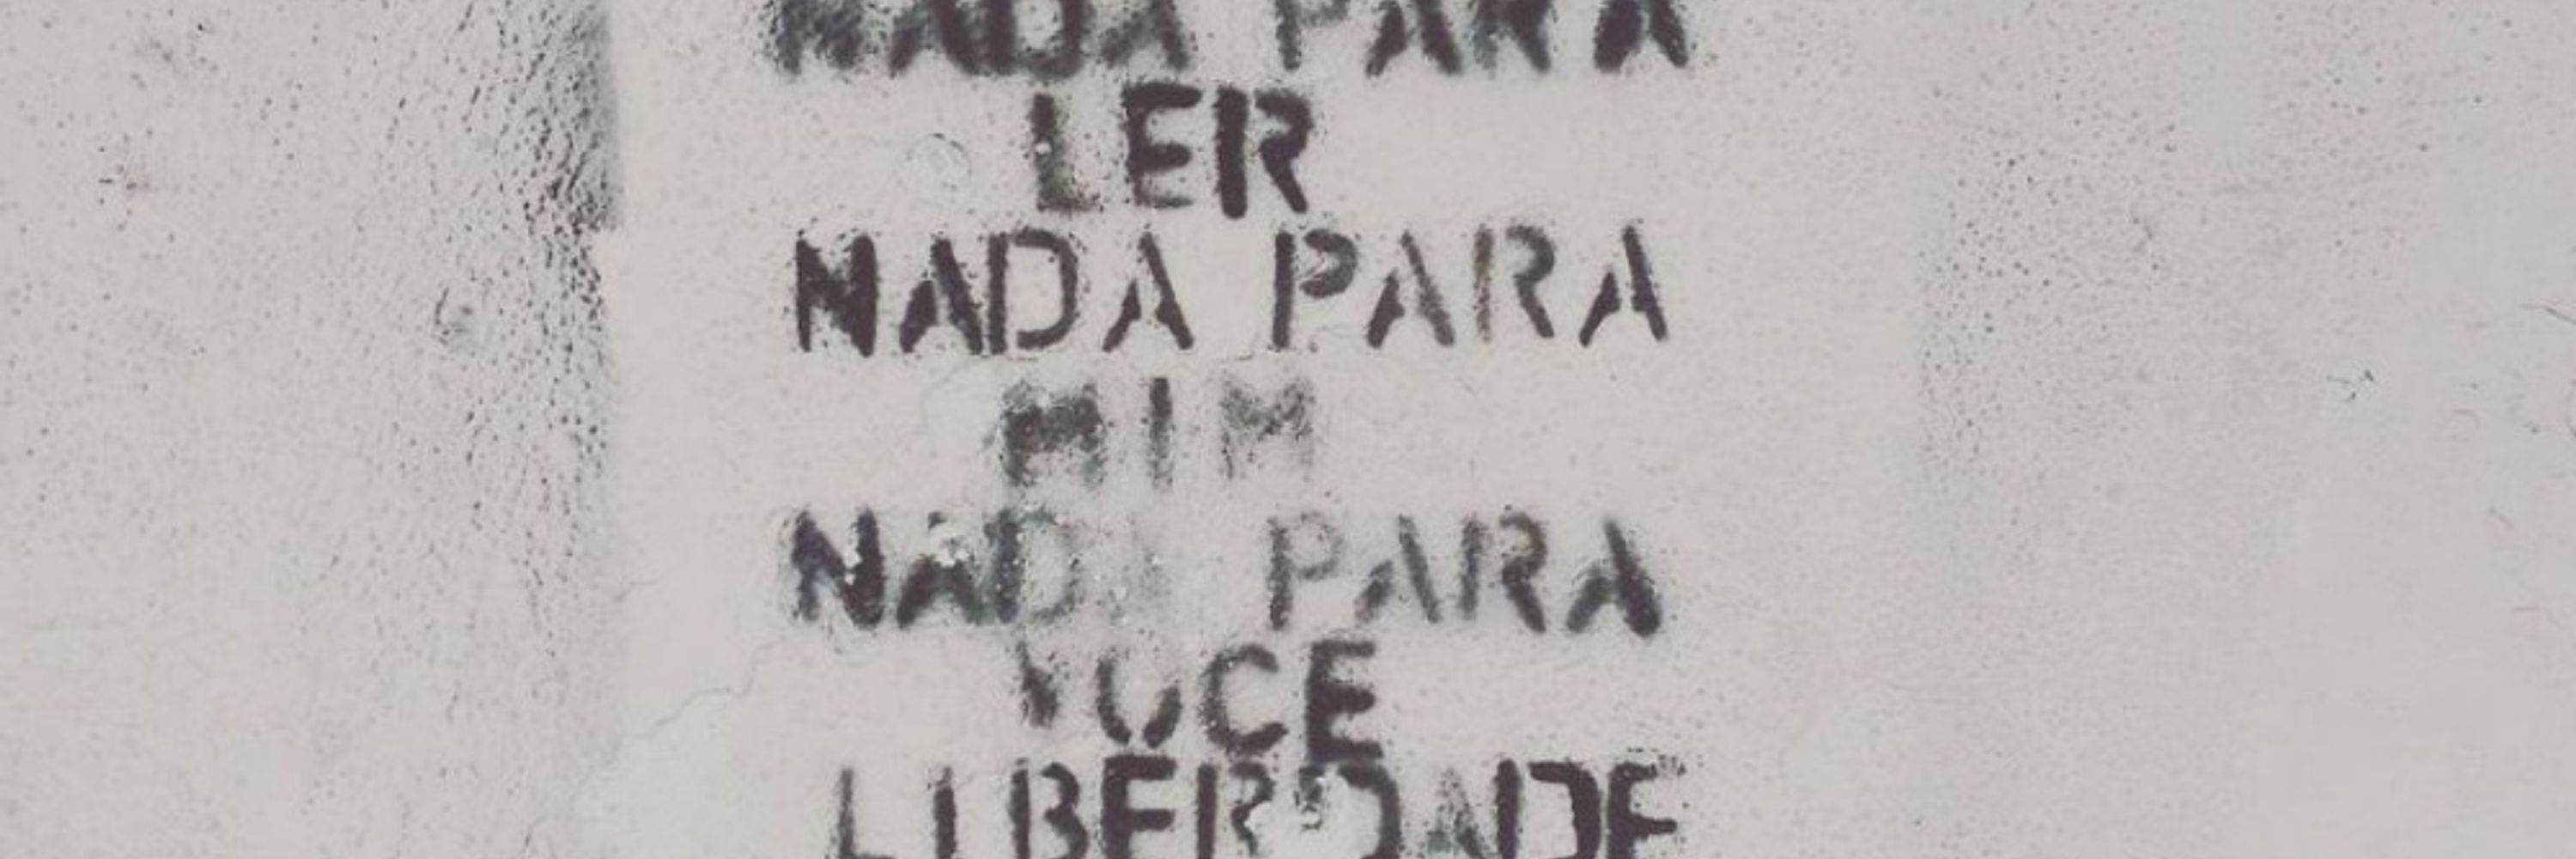 NADA PARA
LER
NADA PARA
MIM
NADA PARA
VOCE
LIBERDADE